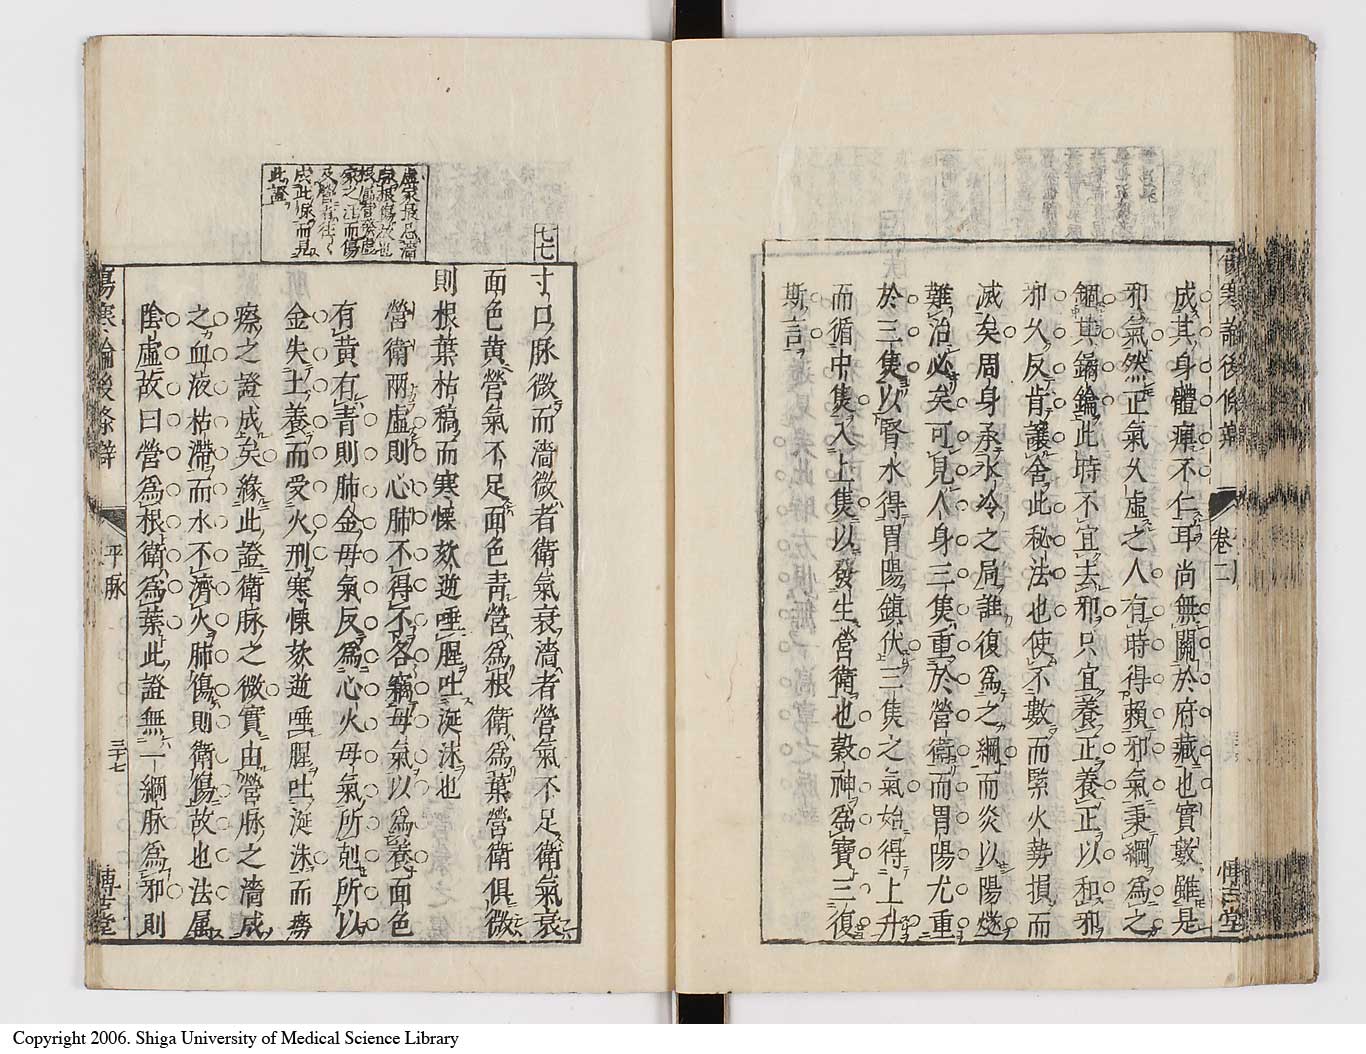 成其身體痹不仁耳尚無關於府藏也實數雖是
邪氣然正氣久虛之人有時得賴邪氣秉綱爲之
錮其鐍鑰此時不宜去邪只宜養正養正以和邪
邪久反肯讓舍此秘法也使不數而緊火勢損而
滅矣周身承氷冷之局誰復爲之綱而炎以陽燧
難治必矣可見人身三焦重於營衛而胃陽尤重
於三焦以腎水得胃陽鎮伏三焦之氣始得上升
而循中焦入上焦以發生營衛也穀神爲寶三復
斯言
卷二
七七
寸口脉微而濇微者衛氣衰濇者營氣不足衛氣衰
面色黄營氣不足面色青營爲根衛爲葉營衛俱微
則根葉枯稿而寒慄欬逆唾腥吐涎沫也
營衛兩虛則心肺不得不各竊母氣以爲養面色
有黄有青則肺金母氣反爲心火母氣所剋所以
金失土養而受火刑寒慄欬逆唾腥吐涎沫而癆
瘵之證成矣緣此證衛脉之微實由營脉之濇成
之血液枯滯而水不濟火肺傷則衛傷故也法属
陰虛故曰營爲根衛爲葉此證無一綱脉爲邪則
傷寒論後條辨
平脉
三十七
博古堂
Copyright 2006. Shiga University of Medical Science Library